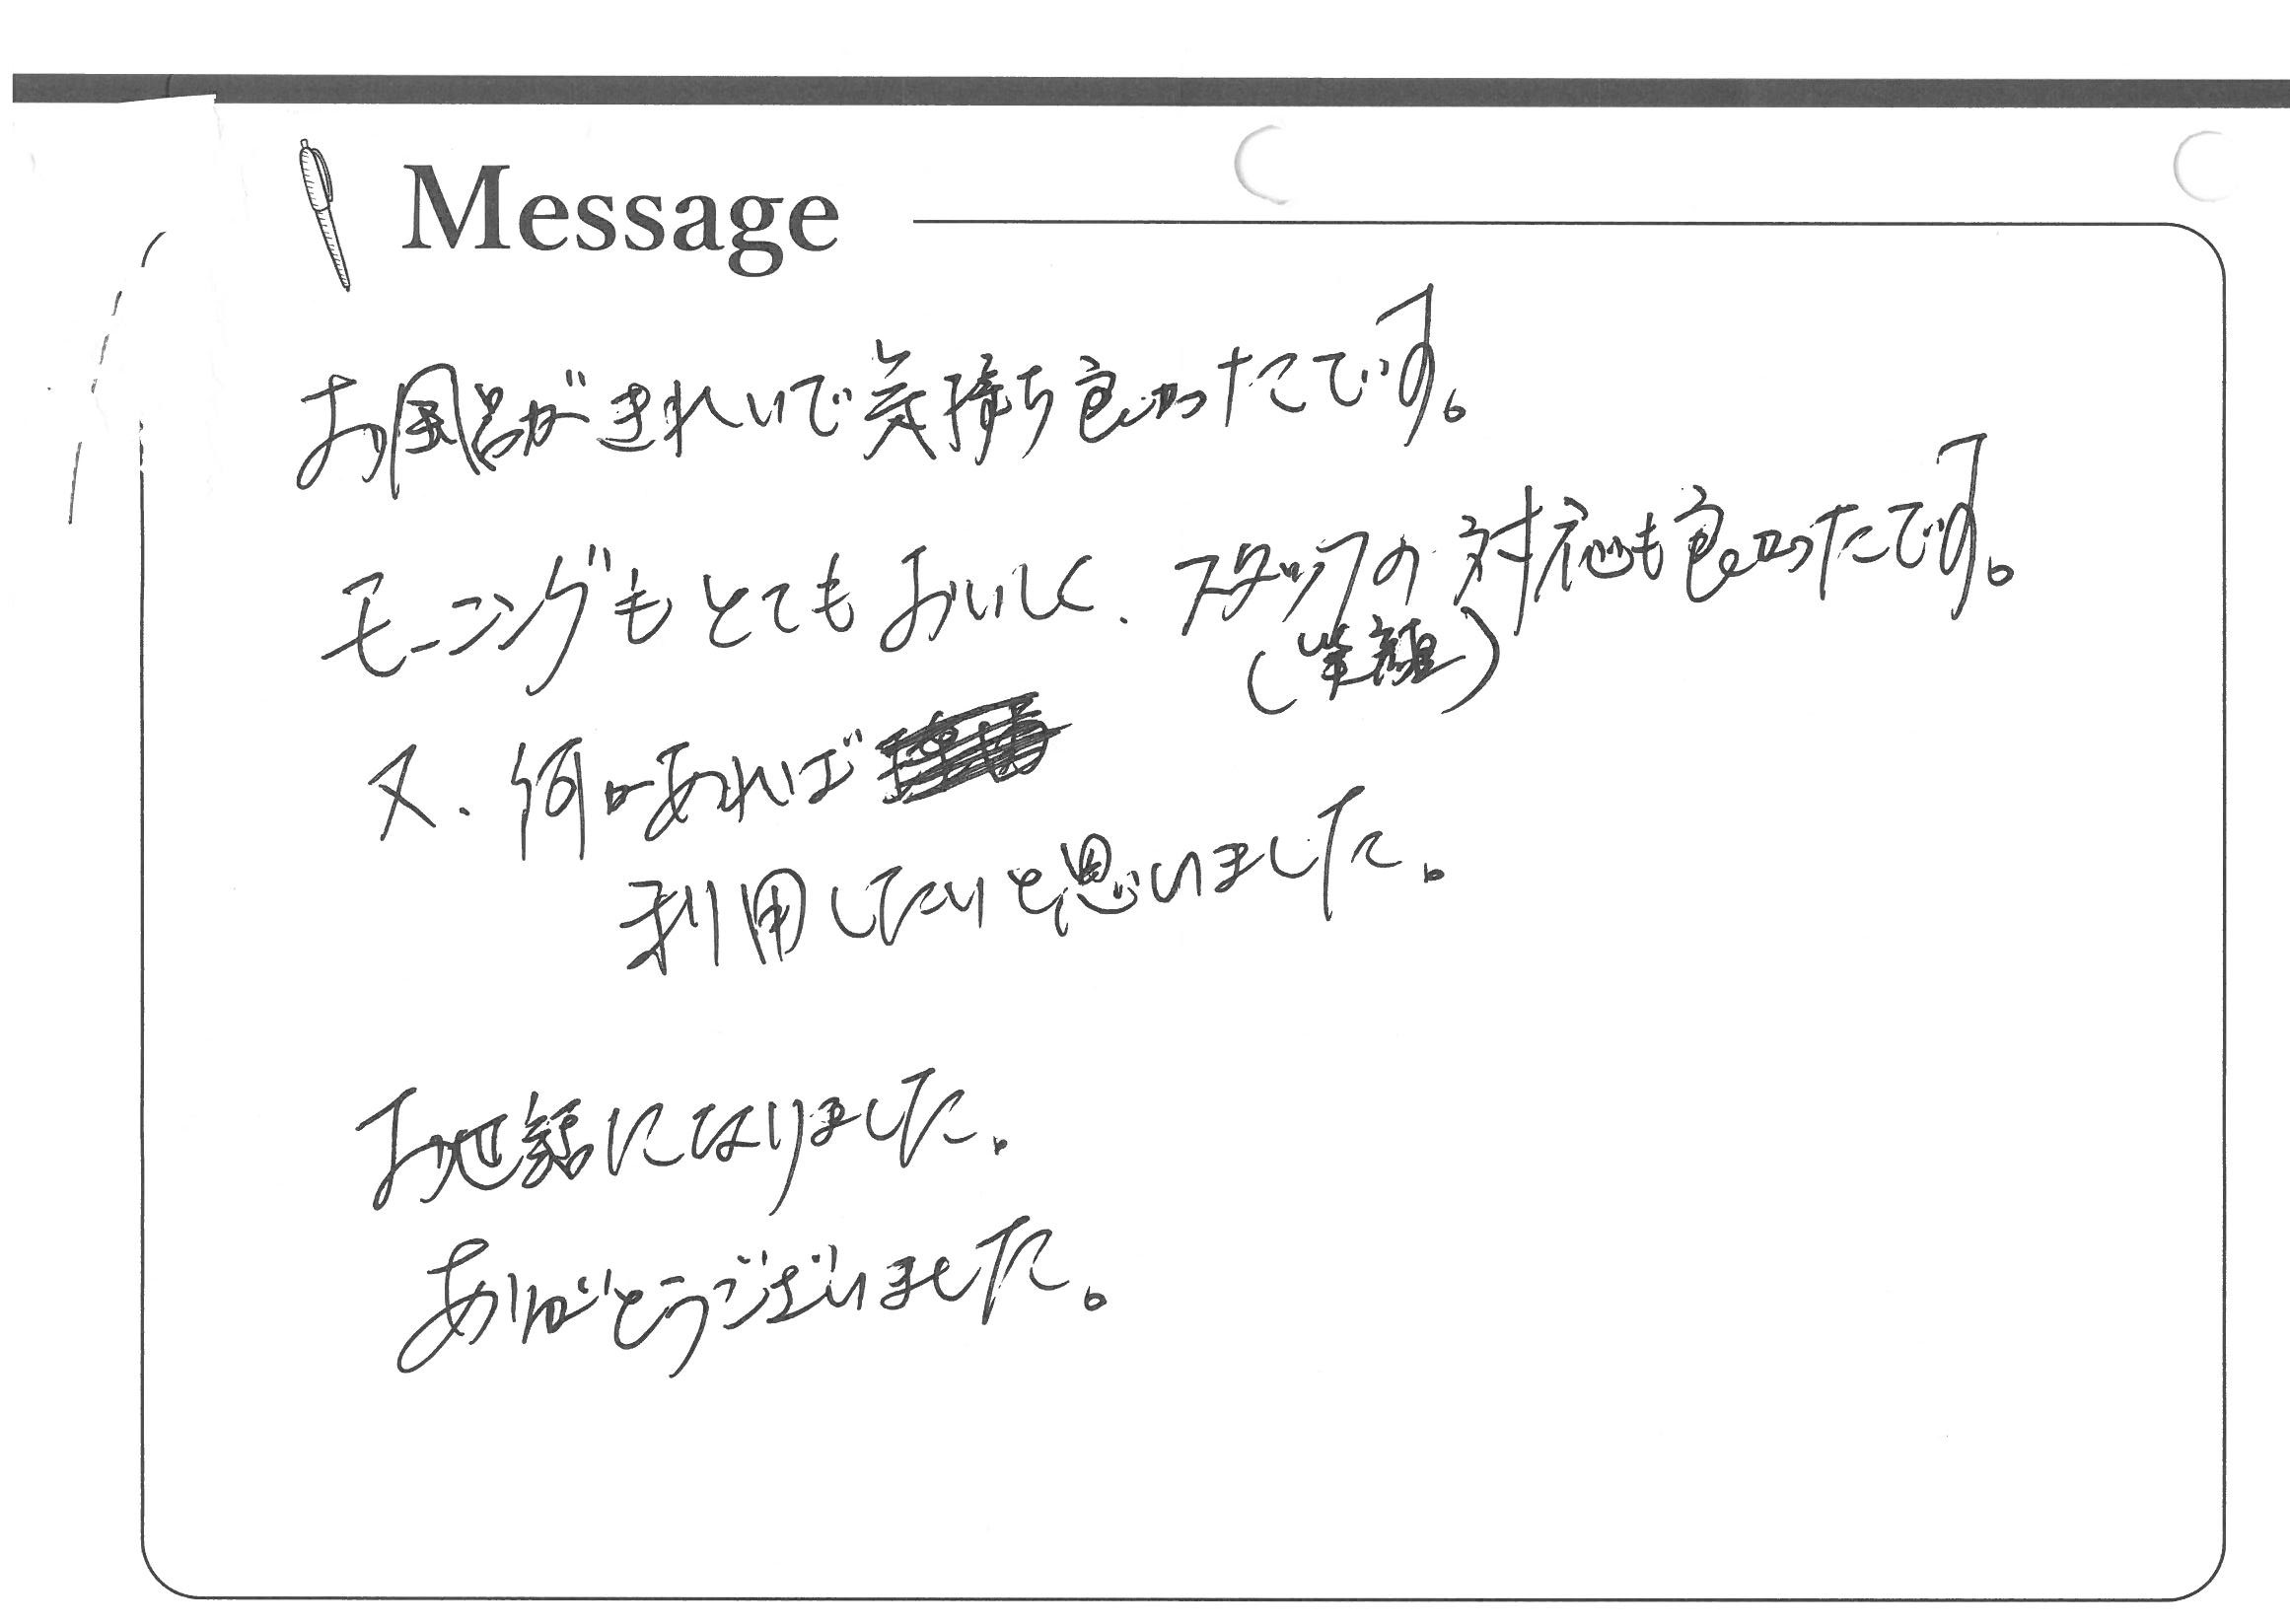 Message
お風呂がきれいで気持ち良かったです。
モーニングもとてもおいしく、スタッフの対応も良かったです。
(笑顔)
又、何かあれば
利用したいと思いました。
お世話になりました。
ありがとうございました。